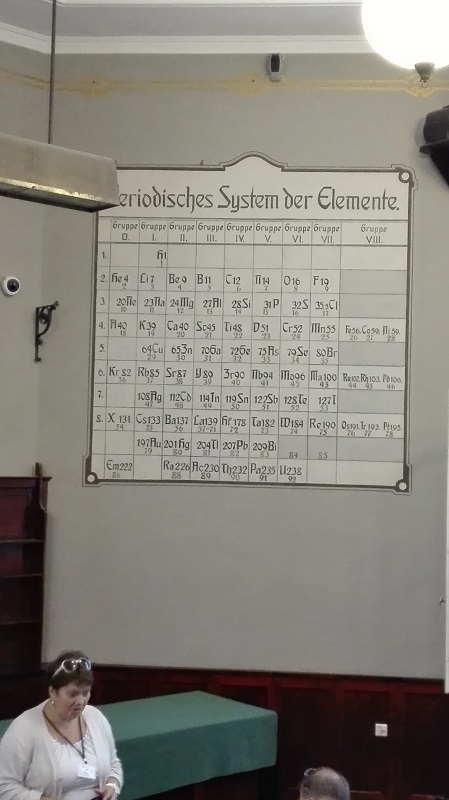 eriodisches System der Elemente.
Gruppe Gruppe Gruppe Gruppe Gruppe Gruppe Gruppe Gruppe Gruppe
0. I. II. III. IV. V. VI. VII. VIII.
1. H1
1
2. He4 Li7 Be9 B11 C12 N14 O16 F19
2 3 4 5 6 7 8 9
3. 20Ne 23Na 24Mg 27Al 28Si 31P 32S 35,5Cl
10 11 12 13 14 15 16 17
4. A40 K39 Ca40 Sc45 Ti48 V51 Cr52 Mn55 Fe56. Co59. Ni59.
18 19 20 21 22 23 24 25 26 27 28
5. 64Cu 65Zn 70Ga 72Ge 75As 79Se 80Br
29 30 31 32 33 34 35
6. Kr82 Rb85 Sr87 Y89 Zr90 Nb94 Mo96 Ma100 Ru102. Rh103. Pd106.
36 37 38 39 40 41 42 43 44 45 46
7. 108Ag 112Cd 114In 119Sn 122Sb 128Te 127J
47 48 49 50 51 52 53
8. X131 Cs133 Ba137 La139 Hf178 Ta182 W184 Re190 Os191. Ir193. Pt195.
54 55 56 57-71 72 73 74 75 76 77 78
197Au 201Hg 204Tl 207Pb 209Bi
79 80 81 82 83 84 85
Em222 Ra226 Ac230 Th232 Pa235 U238
86 88 89 90 91 92